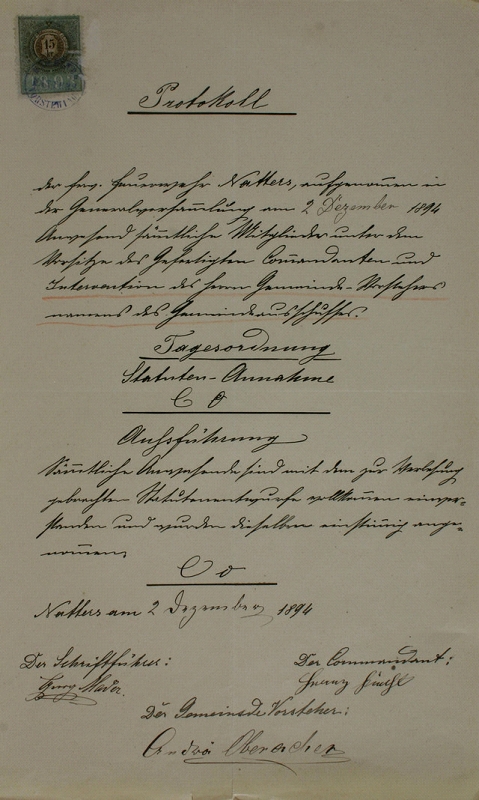 15
Protokoll
der frw. Feuerwehr Natters, aufgenommen in
der Generalversammlung am 2 Dezember 1894
Anwesend sämtliche Mitglieder unter dem
Vorsitze des Gefertigten Commandanten und
Intervention des Herrn Gemeinde-Vorstehers
namens des Gemeindeausschusses.
Tagesordnung
Statuten-Annahme
Ausführung
Sämmtliche Anwesende sind mit dem zur Verlesung
gebrachten Statutenentwurfe vollkommen einver-
standen und wurden dieselben einstimmig ange-
nommen,
Natters am 2 Dezember 1894
Der Schriftführer: Der Commandant:
Georg Mader. Franz
Der Gemeinde Vorsteher:
Andrä Oberacher